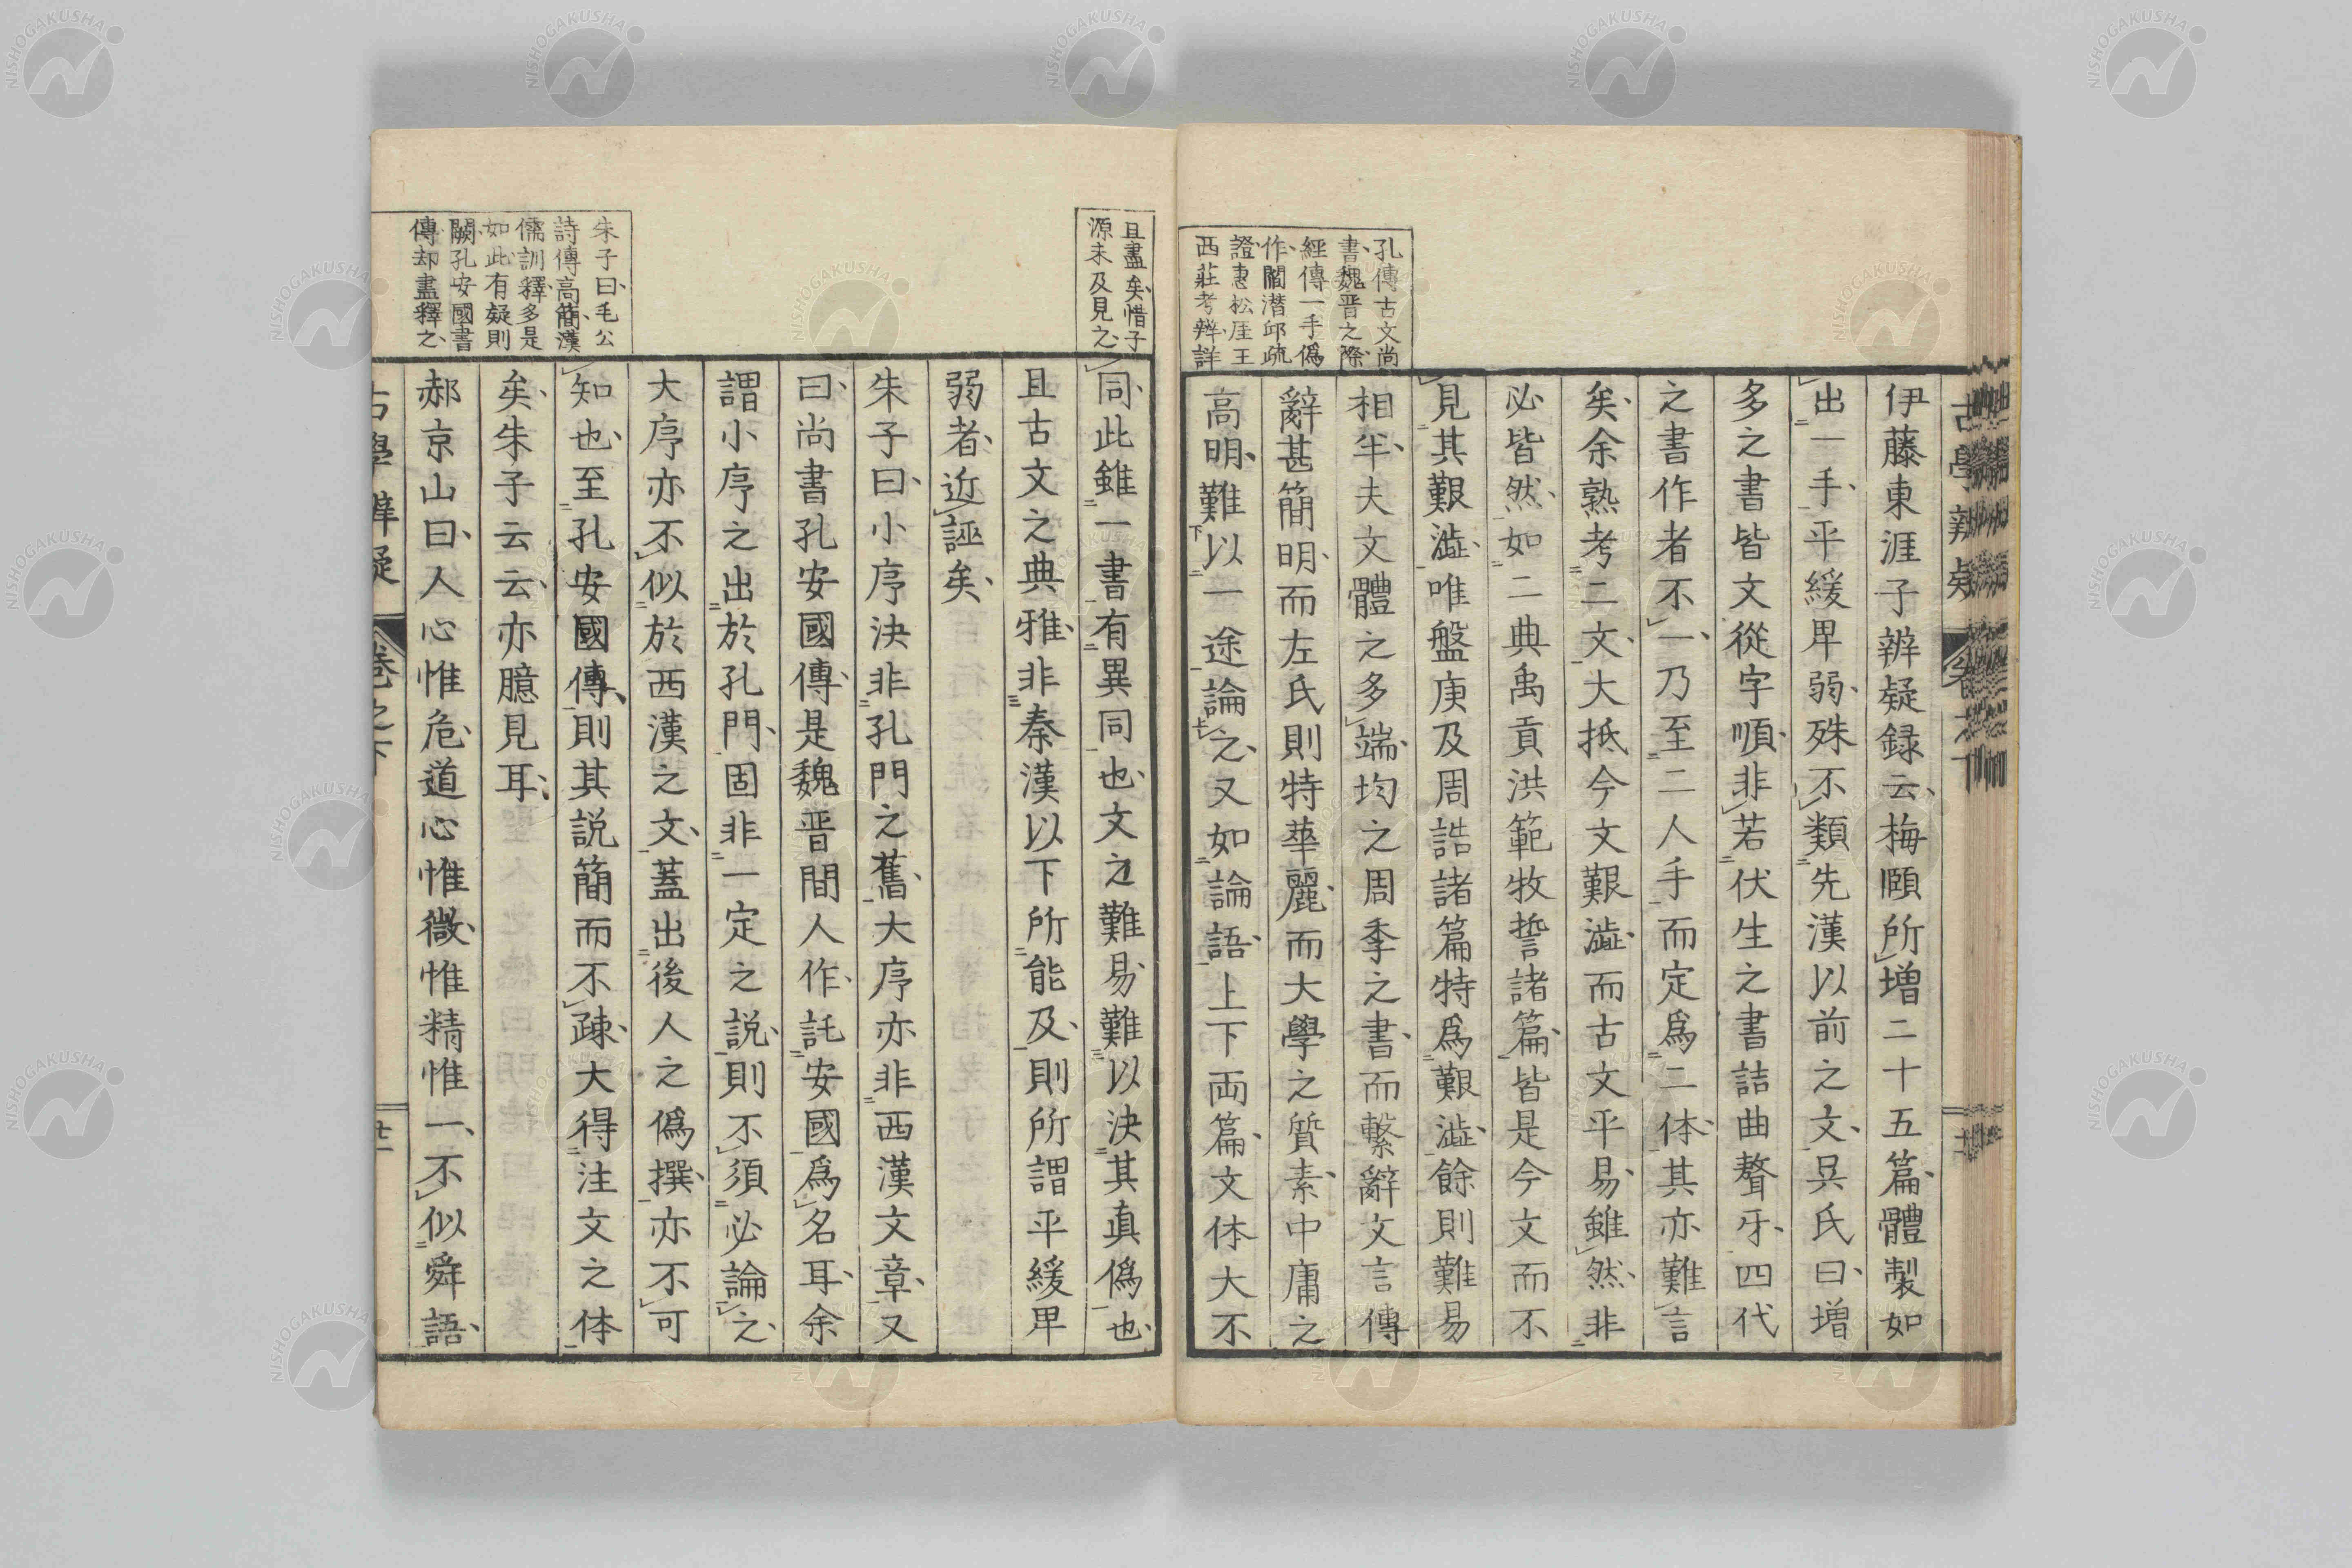 孔傳古文尚
書魏晋之際
經傳一手僞
作閻潜邱疏
證惠松厓王
西莊考辨詳
伊藤東涯子辨疑録云梅頤所增二十五篇體製如
出一手平緩卑弱殊不類先漢以前之文吴氏曰增
多之書皆文從字順非若伏生之書詰曲聱牙四代
之書作者不一乃至二人手而定爲二体其亦難言
矣余熟考二文大抵今文艱澁而古文平易雖然非
必皆然如二典禹貢洪範牧誓諸篇皆是今文而不
見其艱澁唯盤庚及周誥諸篇特爲艱澁餘則難易
相半夫文體之多端均之周季之書而繫辭文言傳
辭甚簡明而左氏則特華麗而大學之質素中庸之
高明難以一途論之又如論語上下両篇文体大不
且盡矣惜子
源未及見之
同此雖一書有異同也文之難易難以決其真僞也
且古文之典雅非秦漢以下所能及則所謂平緩卑
弱者近誣矣
朱子曰小序決非孔門之舊大序亦非西漢文章又
曰尚書孔安國傳是魏晋間人作託安國爲名耳余
謂小序之出於孔門固非一定之説則不須必論之
大序亦不似於西漢之文蓋出後人之僞撰亦不可
知也至孔安國傳則其説簡而不疎大得注文之体
矣朱子云云亦臆見耳
朱子曰毛公
詩傳高簡漢
儒訓釋多是
如此有疑則
闕孔安國書
傳却盡釋之
郝京山曰人心惟危道心惟微惟精惟一不似舜語
古學辨疑 卷之下 廿二